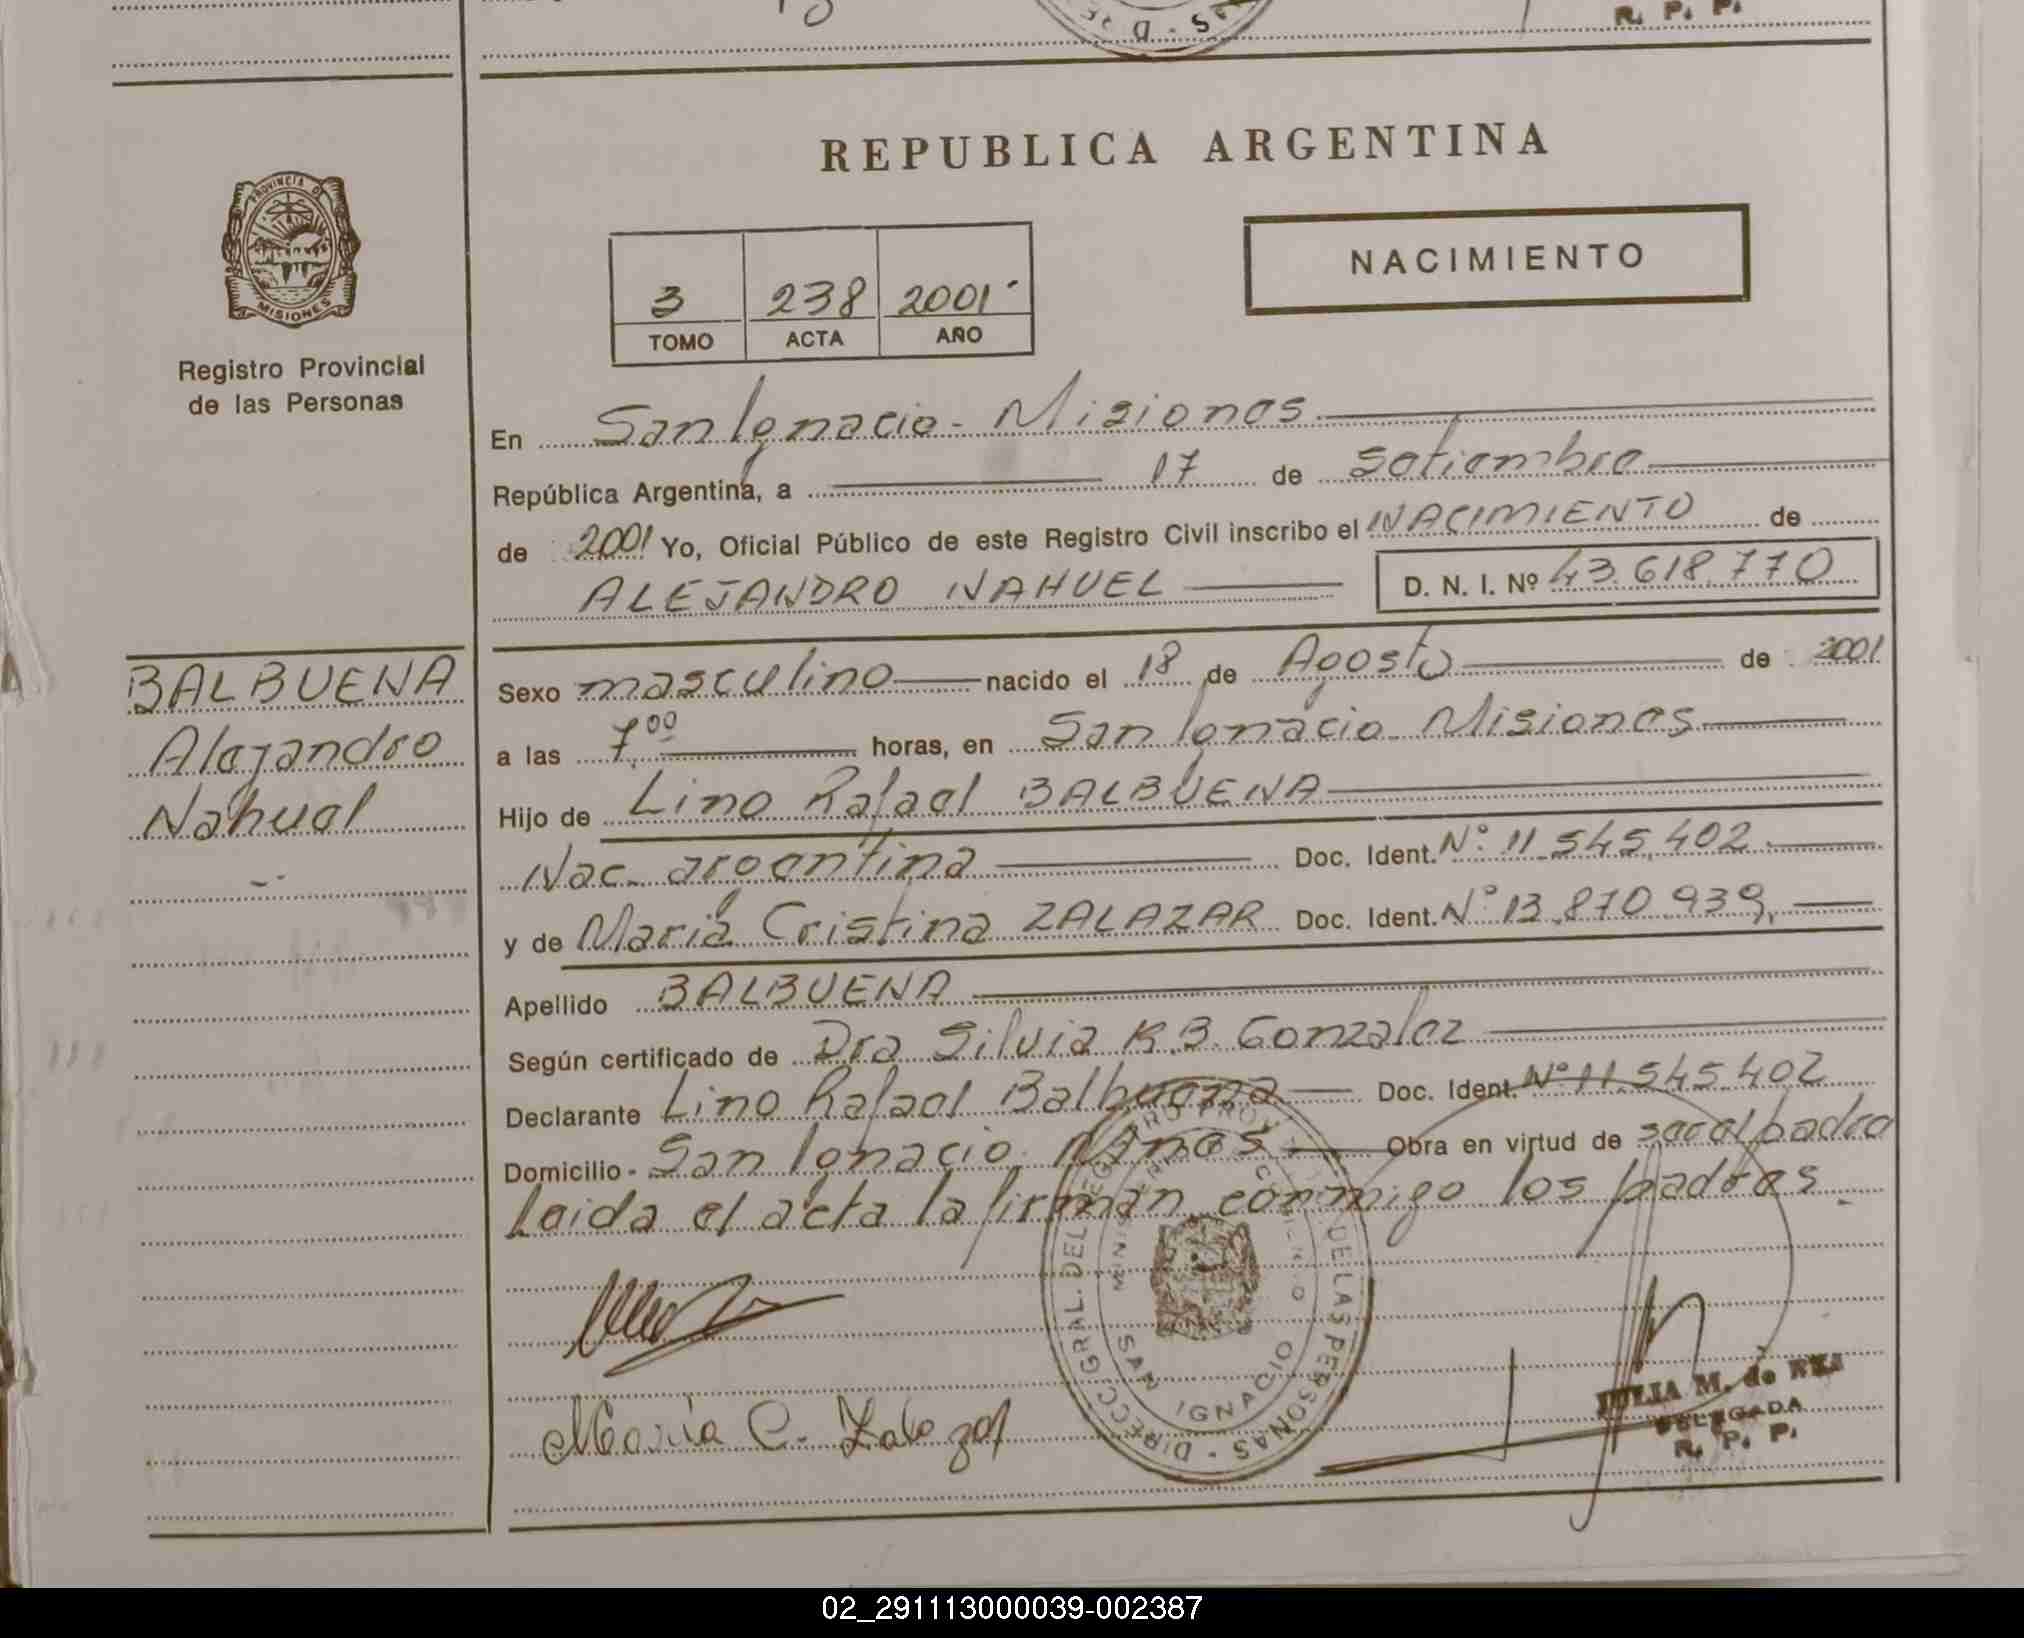 R. P. P.
REPUBLICA ARGENTINA
PROVINCIA DE
MISIONES
Registro Provincial
de las Personas
NACIMIENTO
3 238 2001
TOMO ACTA AÑO
En San Ignacio - Misiones
República Argentina, a 17 de Setiembre
de 2001 Yo, Oficial Público de este Registro Civil inscribo el NACIMIENTO de
ALEJANDRO NAHUEL D. N. I. Nº 43.618.770
BALBUENA
Alejandro
Nahuel
Sexo masculino nacido el 18 de Agosto de 2001
a las 7,00 horas, en San Ignacio - Misiones
Hijo de Lino Rafael BALBUENA
Nac. argentina Doc. Ident. Nº 11.545.402
y de María Cristina ZALAZAR Doc. Ident. Nº 13.870.939,
Apellido BALBUENA
Según certificado de Dra Silvia R.B. Gonzalez
Declarante Lino Rafael Balbuena Doc. Ident. Nº 11.545.402
Domicilio - San Ignacio Mnes Obra en virtud de ser el padre
Leida el acta la firman conmigo los padres.
María C. Zalazar
DIRECC. GRAL. DEL REGISTRO PROV. DE LAS PERSONAS
SAN IGNACIO
JULIA M. de REI
DELEGADA
R. P. P.
02_291113000039-002387